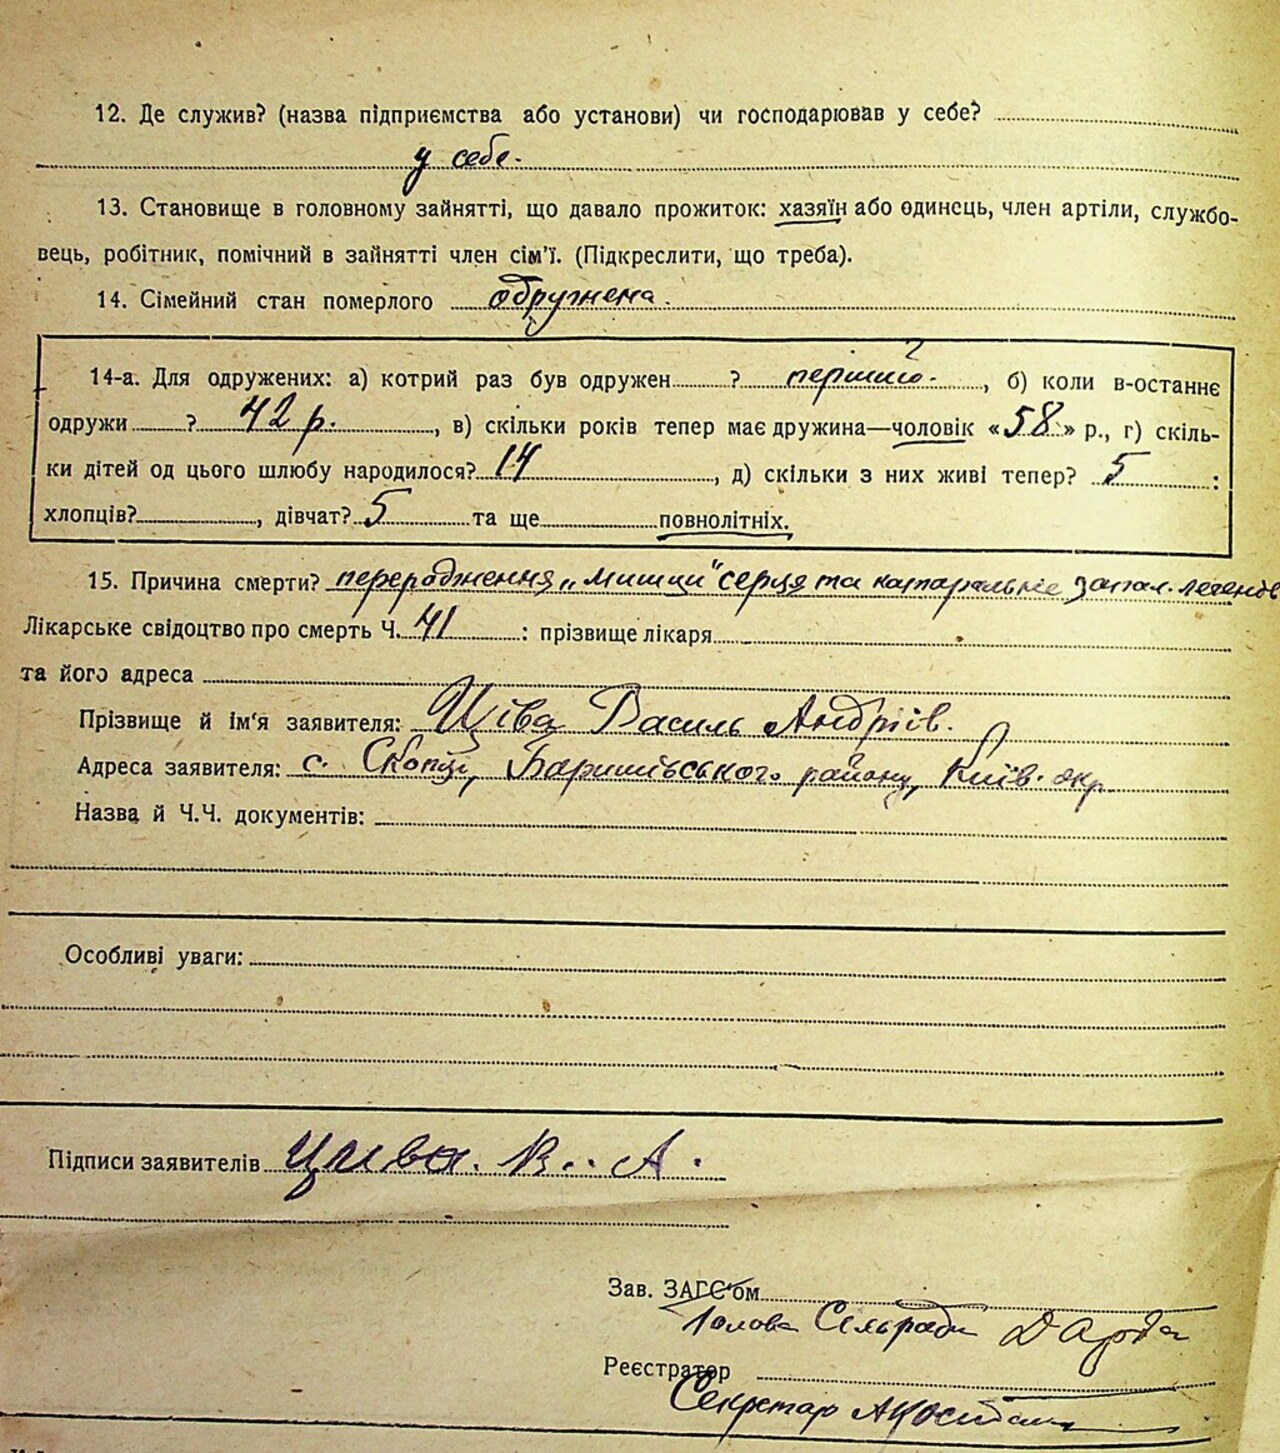 12. Де служив? (назва підприємства або установи) чи господарював у себе?
у себе.
13. Становище в головному зайнятті, що давало прожиток: хазяїн або одинець, член артіли, службо-
вець, робітник, помічний в зайнятті член сім'ї. (Підкреслити, що треба).
14. Сімейний стан померлого одружена.
14-а. Для одружених: а) котрий раз був одружен ? перший., б) коли в-останнє
одружи ? 42 р., в) скільки років тепер має дружина—чоловік «58» р., г) скіль-
ки дітей од цього шлюбу народилося? 14, д) скільки з них живі тепер? 5:
хлопців?, дівчат? 5 та ще повнолітніх.
15. Причина смерти? переродження „мишци" серця та катаральне запал. легенів
Лікарське свідоцтво про смерть Ч. 41: прізвище лікаря
та його адреса
Прізвище й ім'я заявителя: Ціва Василь Андріїв.
Адреса заявителя: с. Скопці, Баришівського району, Київ. окр.
Назва й Ч.Ч. документів:
Особливі уваги:
Підписи заявителів Цива. В. А.
Зав. ЗАГС'ом
Голова Сільради
Реєстратор
Секретар